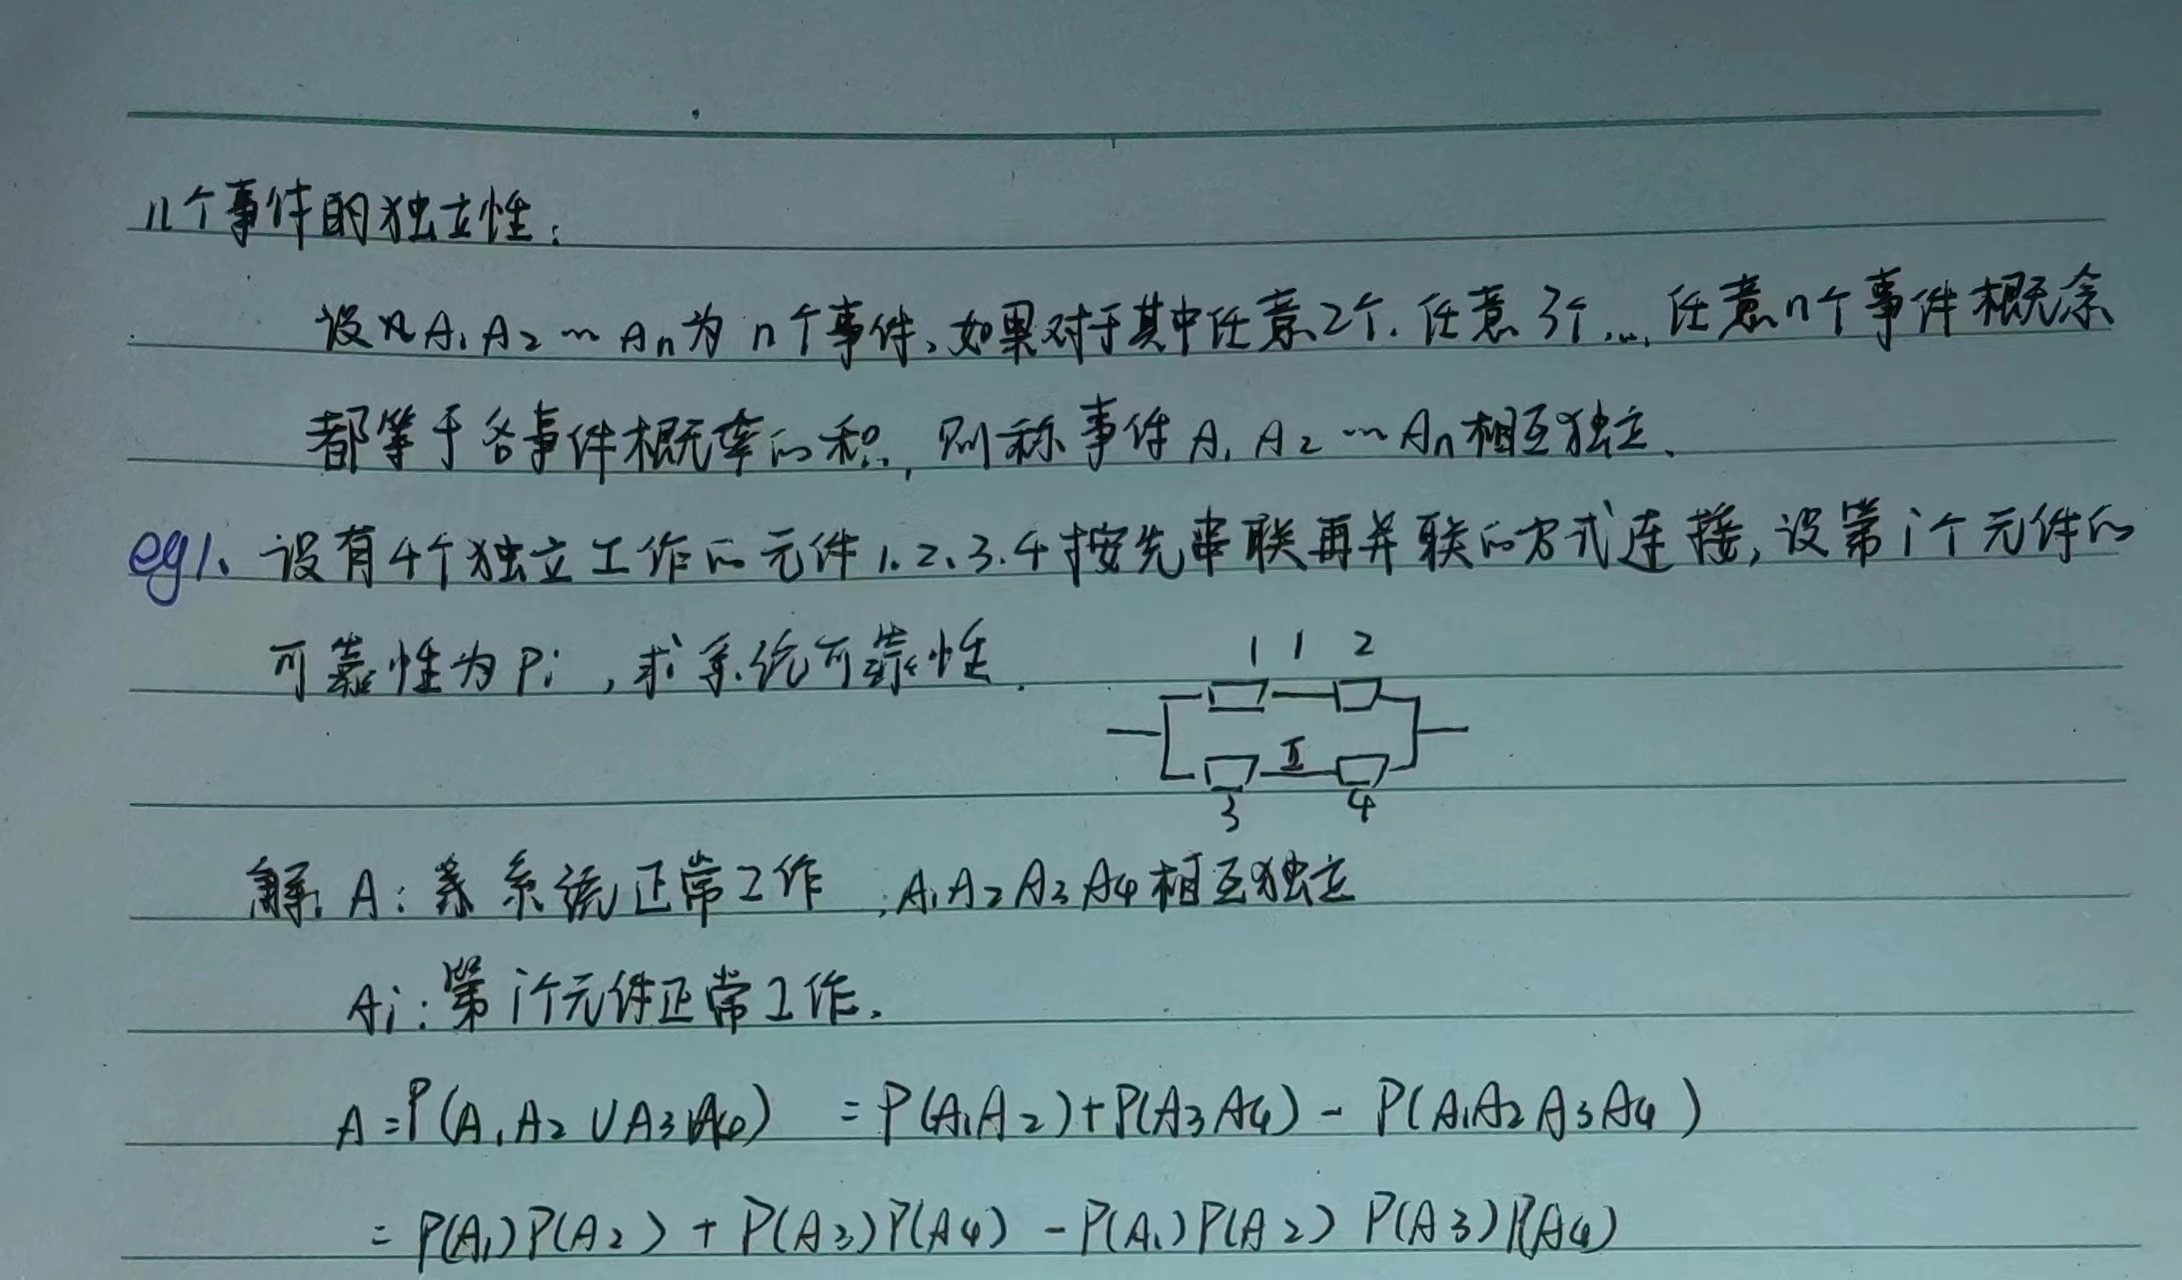 n个事件的独立性:
设 A₁ A₂ … Aₙ为 n个事件,如果对于其中任意2个. 任意3个 ... 任意n个事件概
都等于各事件概率的积, 则称事件 A₁ A₂ … Aₙ相互独立.
eg1. 设有4个独立工作的元件1.2.3.4按先串联再并联的方式连接,设第i个元件的
可靠性为Pi ,求系统可靠性.
1 1 2
Ⅱ
3 4
解: A: 系统正常工作 ; A₁A₂A₃A₄相互独立
Ai:第i个元件正常工作.
A=P(A₁A₂∪A₃A₄) =P(A₁A₂)+P(A₃A₄)-P(A₁A₂A₃A₄)
=P(A₁)P(A₂)+P(A₃)P(A₄)-P(A₁)P(A₂)P(A₃)P(A₄)